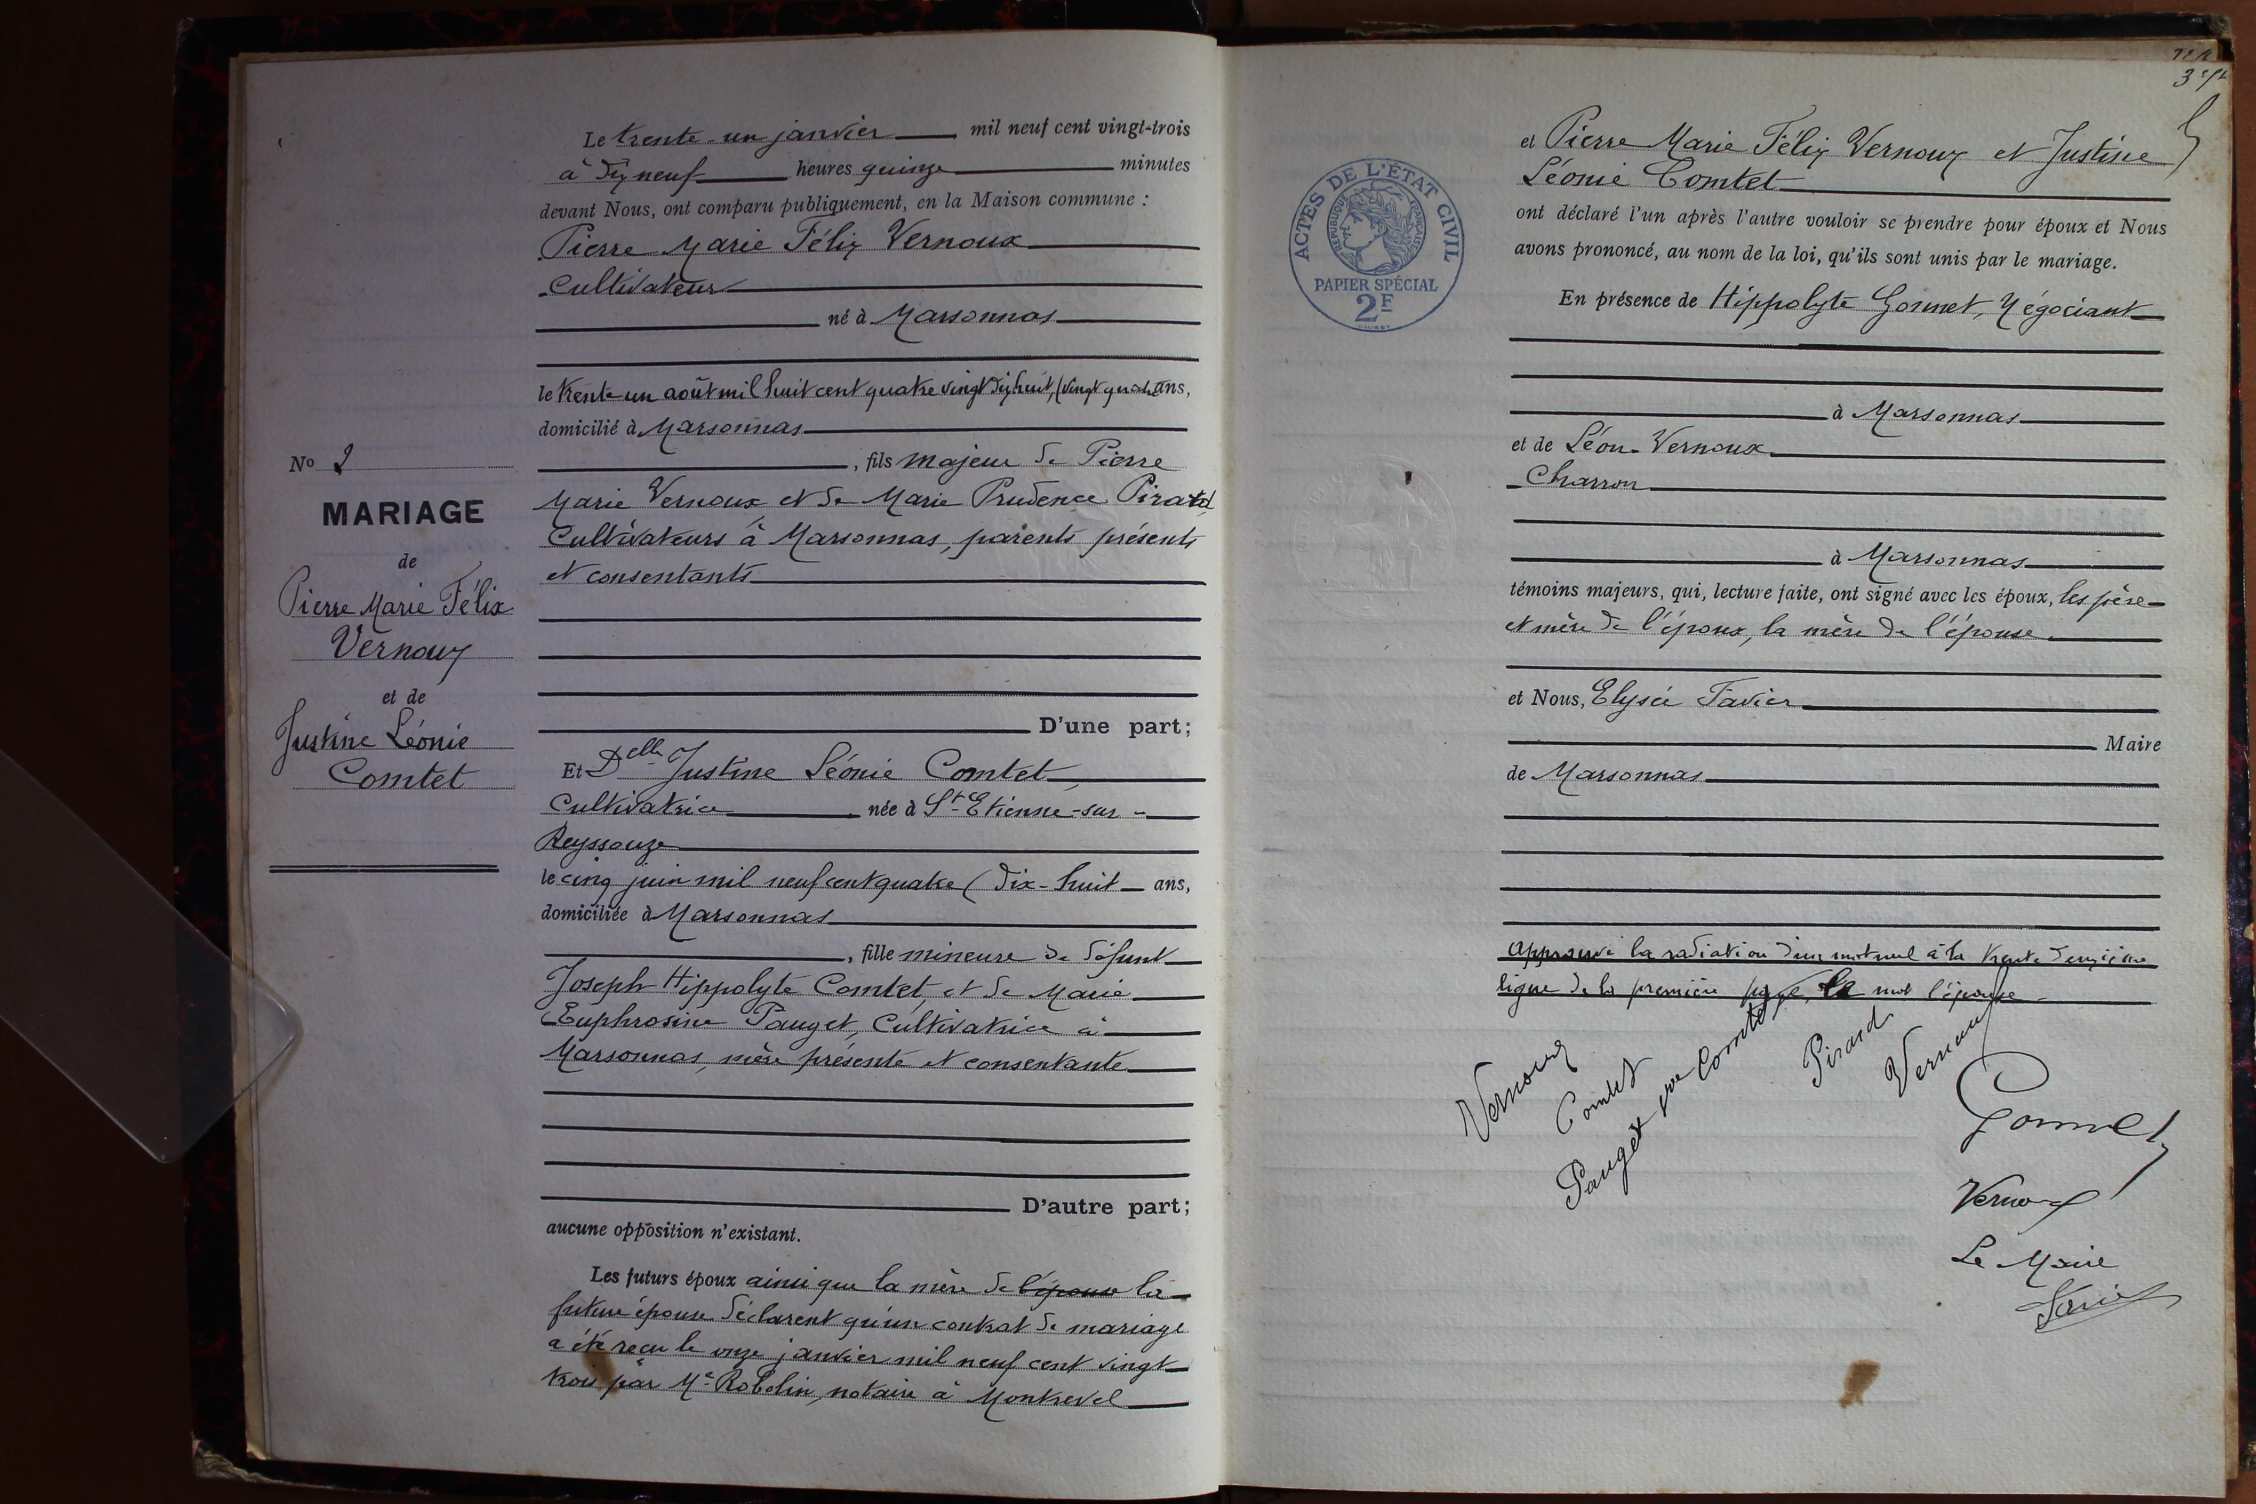 Le trente-un janvier mil neuf cent vingt-trois
à dix neuf heures quinze minutes
devant Nous, ont comparu publiquement, en la Maison commune :
Pierre Marie Félix Vernoux
Cultivateur
né à Marsonnas
le trente un août mil huit cent quatre vingt dix huit, (vingt quatre ans,
domicilié à Marsonnas
No 2
, fils majeur de Pierre
Marie Vernoux et de Marie Prudence Pirard
Cultivateurs à Marsonnas, parents présents
et consentants
MARIAGE
de
Pierre Marie Félix
Vernoux
et de
Justine Léonie
Comtet
D'une part;
Et Delle Justine Léonie Comtet
Cultivatrice née à St-Etienne-sur-
Reyssouze
le cinq juin mil neuf cent quatre (dix-huit ans,
domiciliée à Marsonnas
, fille mineure de défunt
Joseph Hippolyte Comtet, et de Marie
Euphrosine Pauget, Cultivatrice à
Marsonnas, mère présente et consentante
D'autre part;
aucune opposition n'existant.
Les futurs époux ainsi que la mère de l'épouse la
future épouse déclarent qu'un contrat de mariage
a été reçu le onze janvier mil neuf cent vingt
trois par Me Robelin, notaire à Montrevel
3e
et Pierre Marie Félix Vernoux et Justine
Léonie Comtet
ont déclaré l'un après l'autre vouloir se prendre pour époux et Nous
avons prononcé, au nom de la loi, qu'ils sont unis par le mariage.
ACTES DE L'ÉTAT CIVIL
RÉPUBLIQUE FRANÇAISE
PAPIER SPÉCIAL
2F
En présence de Hippolyte Gonnet, Négociant
à Marsonnas
et de Léon Vernoux
Charron
à Marsonnas
témoins majeurs, qui, lecture faite, ont signé avec les époux, les père
et mère de l'époux, la mère de l'épouse.
et Nous, Elysée Favier
Maire
de Marsonnas
Approuvé la radiation d'un mot nul à la trente deuxième
ligne de la première page, le mot l'épouse
Vernoux
Comtet
Pauget vve Comtet
Pirard
Vernoux
Gonnet
Vernoux
Le Maire
Favier